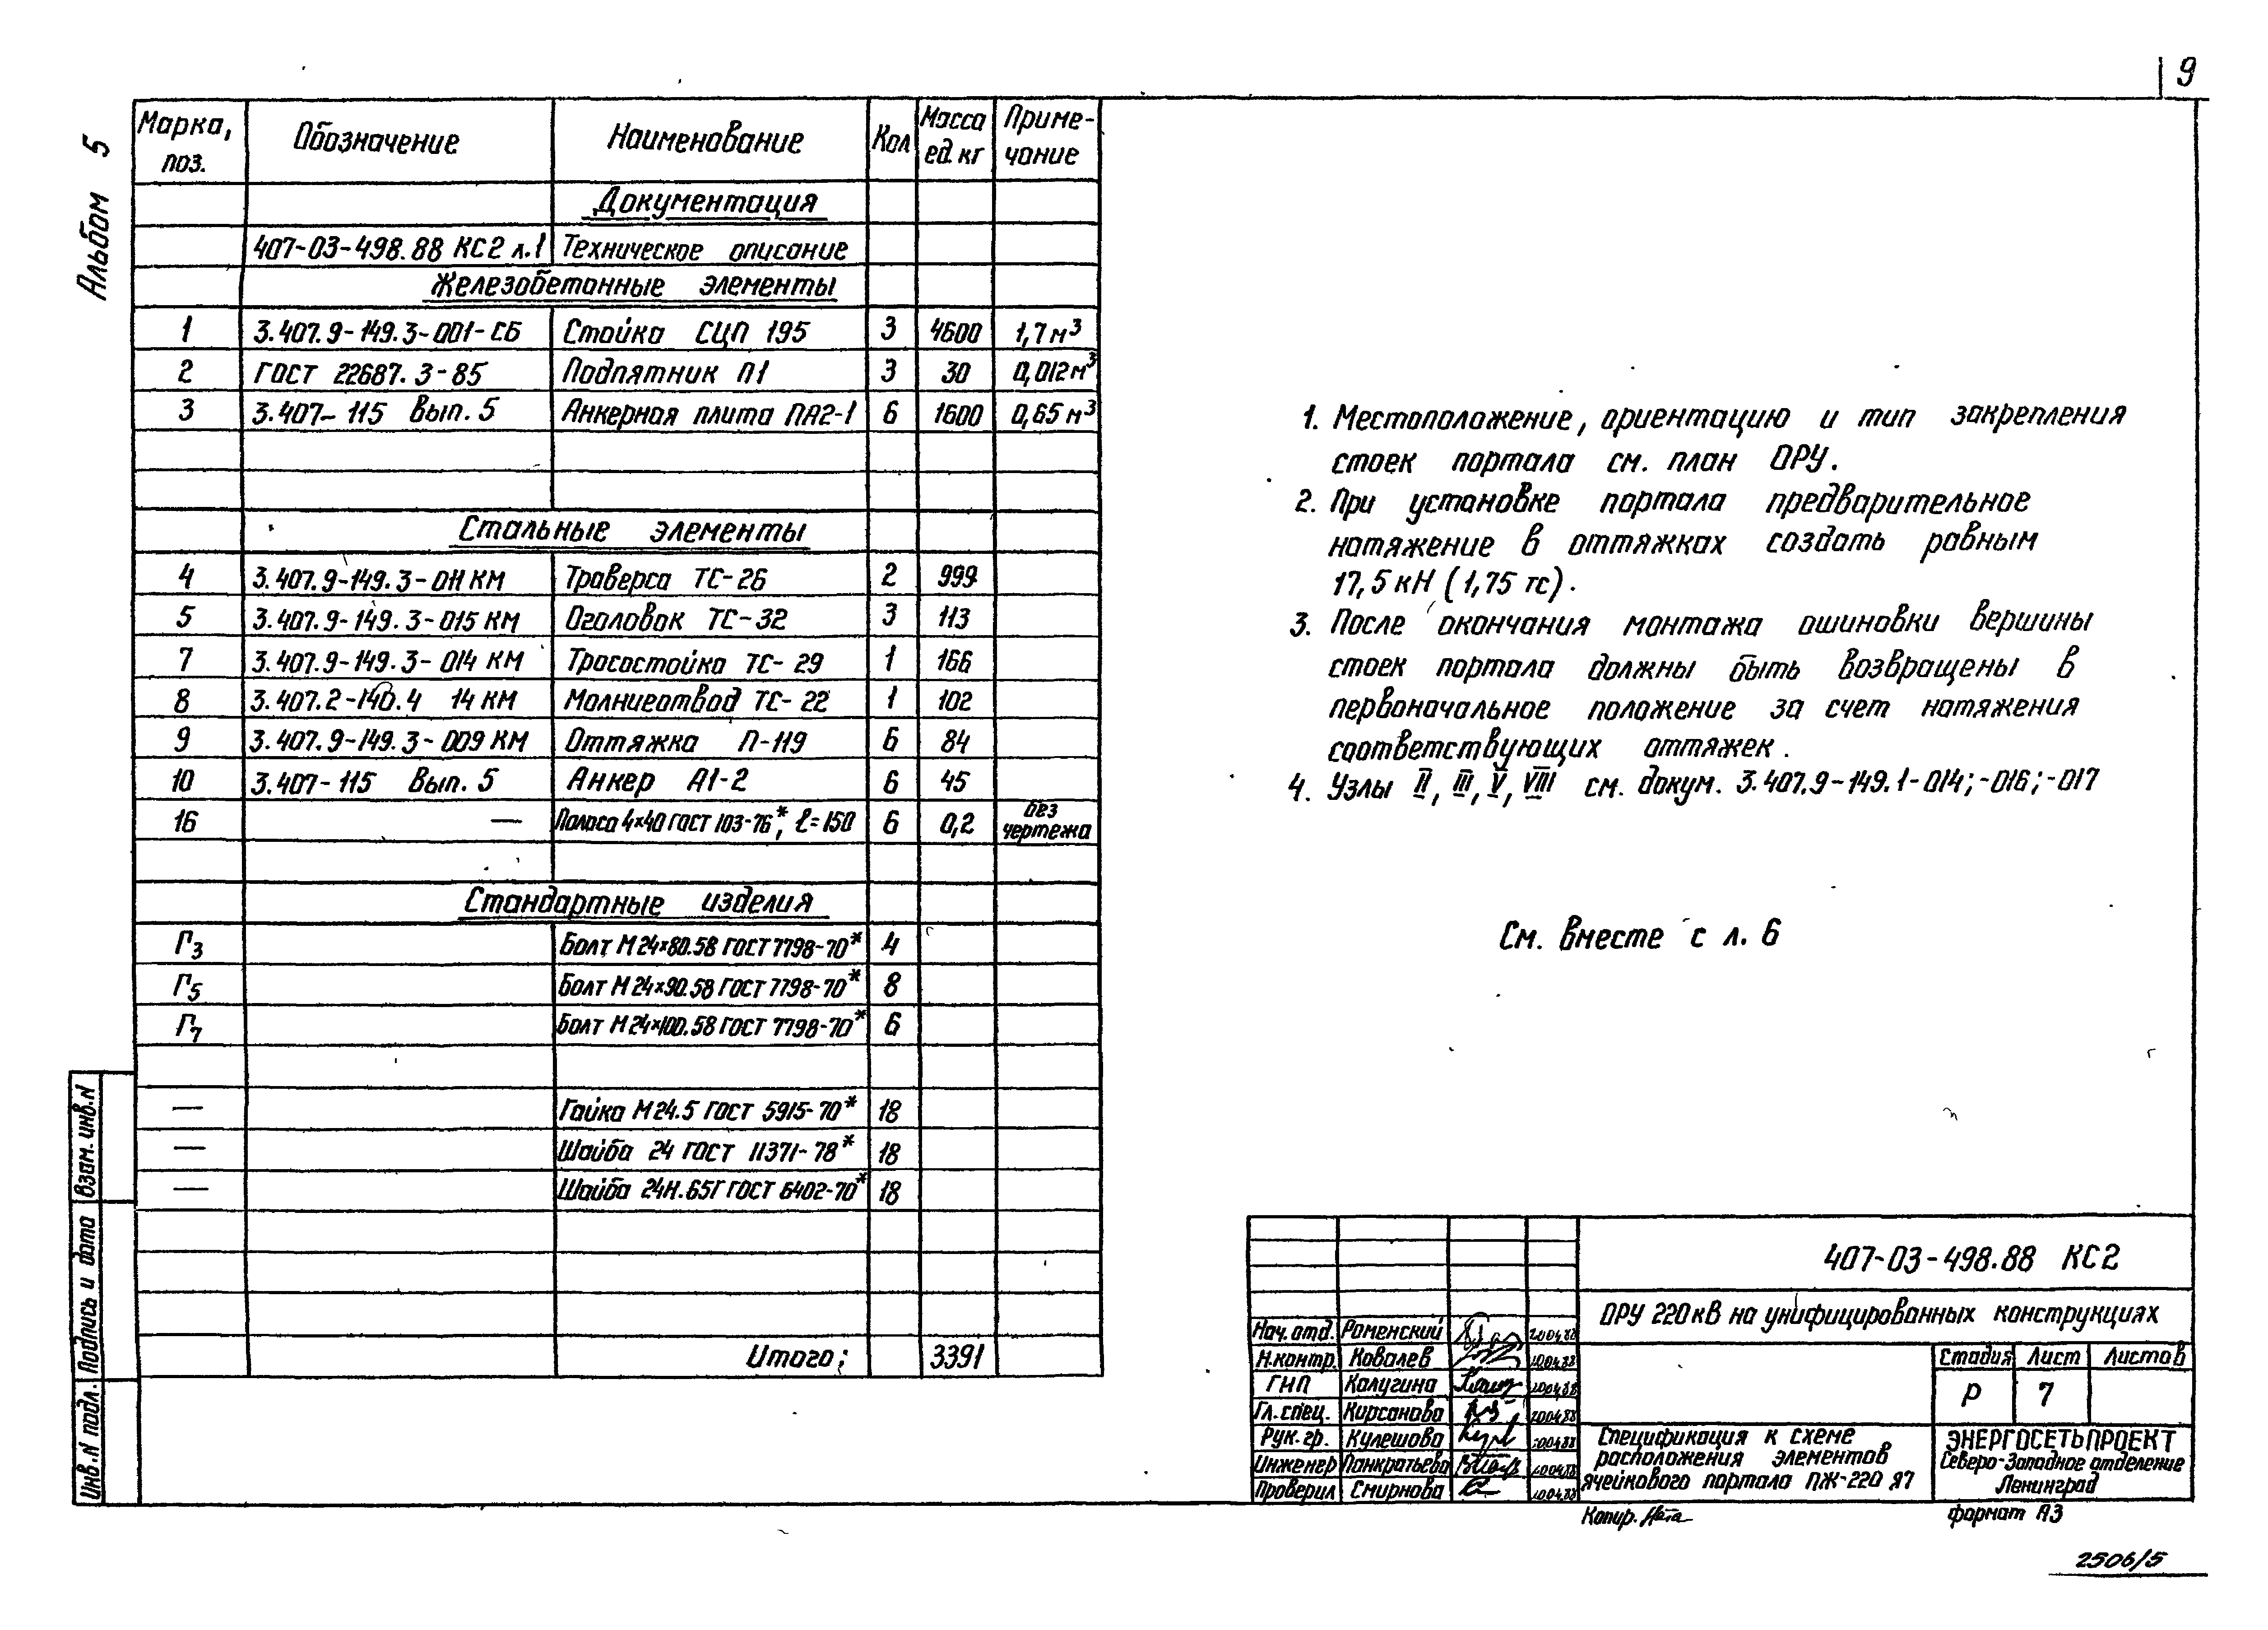 9
Альбом 5
Марка, поз. Обозначение Наименование Кол Масса ед. кг Примечание
Документация
407-03-498.88 КС2 л.1 Техническое описание
Железобетонные элементы
1 3.407.9-149.3-001-СБ Стойка СЦП 195 3 4600 1,7 м³
2 ГОСТ 22687.3-85 Подпятник П1 3 30 0,012 м³
3 3.407-115 Вып. 5 Анкерная плита ПА2-1 6 1600 0,65 м³
Стальные элементы
4 3.407.9-149.3-011 КМ Траверса ТС-26 2 999
5 3.407.9-149.3-015 КМ Оголовок ТС-32 3 113
7 3.407.9-149.3-014 КМ Тросостойка ТС-29 1 166
8 3.407.2-140.4 14 КМ Молниеотвод ТС-22 1 102
9 3.407.9-149.3-009 КМ Оттяжка П-119 6 84
10 3.407-115 Вып. 5 Анкер А1-2 6 45
16 — Полоса 4×40 ГОСТ 103-76*, ℓ=150 6 0,2 без чертежа
Стандартные изделия
Г3 Болт М24×80.58 ГОСТ 7798-70* 4
Г5 Болт М24×90.58 ГОСТ 7798-70* 8
Г7 Болт М24×100.58 ГОСТ 7798-70* 6
— Гайка М24.5 ГОСТ 5915-70* 18
— Шайба 24 ГОСТ 11371-78* 18
— Шайба 24Н.65Г ГОСТ 6402-70* 18
Итого: 3391
1. Местоположение, ориентацию и тип закрепления
стоек портала см. план ОРУ.
2. При установке портала предварительное
натяжение в оттяжках создать равным
17,5 кН (1,75 тс).
3. После окончания монтажа ошиновки вершины
стоек портала должны быть возвращены в
первоначальное положение за счет натяжения
соответствующих оттяжек.
4. Узлы II, III, V, VIII см. докум. 3.407.9-149.1-014; -016; -017
См. вместе с л. 6
Взам. инв. N
Подпись и дата
Инв. N подл.
407-03-498.88 КС2
ОРУ 220 кВ на унифицированных конструкциях
Нач. отд. Роменский 200488
Н.контр. Ковалев 200488
ГНП Калугина 200488
Гл. спец. Кирсанова 200488
Рук. гр. Кулешова 200488
Инженер Панкратьева 200488
Проверил Смирнова 200488
Стадия Лист Листов
Р 7
Спецификация к схеме
расположения элементов
ячейкового портала ПЖ-220 Я7
ЭНЕРГОСЕТЬПРОЕКТ
Северо-Западное отделение
Ленинград
Копир.
формат А3
2506/5